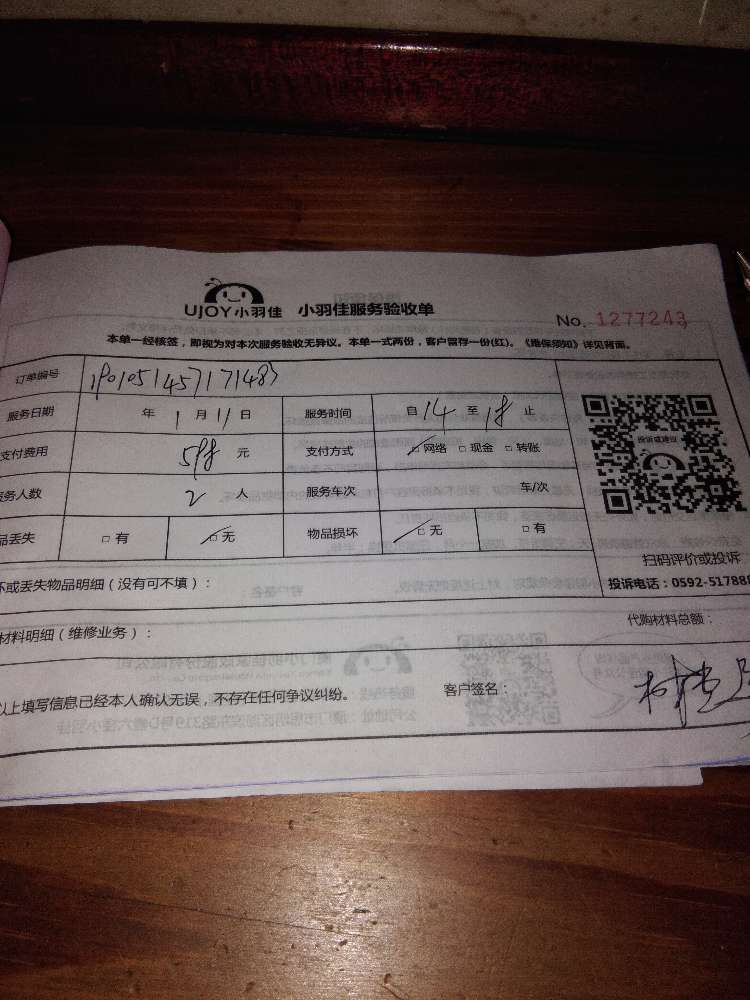 UJOY小羽佳 小羽佳服务验收单 No. 1277243
本单一经核签，即视为对本次服务验收无异议。本单一式两份，客户留存一份(红)。《维保须知》详见背面。
订单编号
服务日期 年 1 月 11 日 服务时间 自 14 至 18 止
支付费用 588 元 支付方式 网络 现金 转账
务人数 2 人 服务车次 车/次
品丢失 有 无 物品损坏 无 有
投诉或建议
扫码评价或投诉
投诉电话：0592-517888
坏或丢失物品明细（没有可不填）：
材料明细（维修业务）： 代购材料总额：
以上填写信息已经本人确认无误，不存在任何争议纠纷。 客户签名：